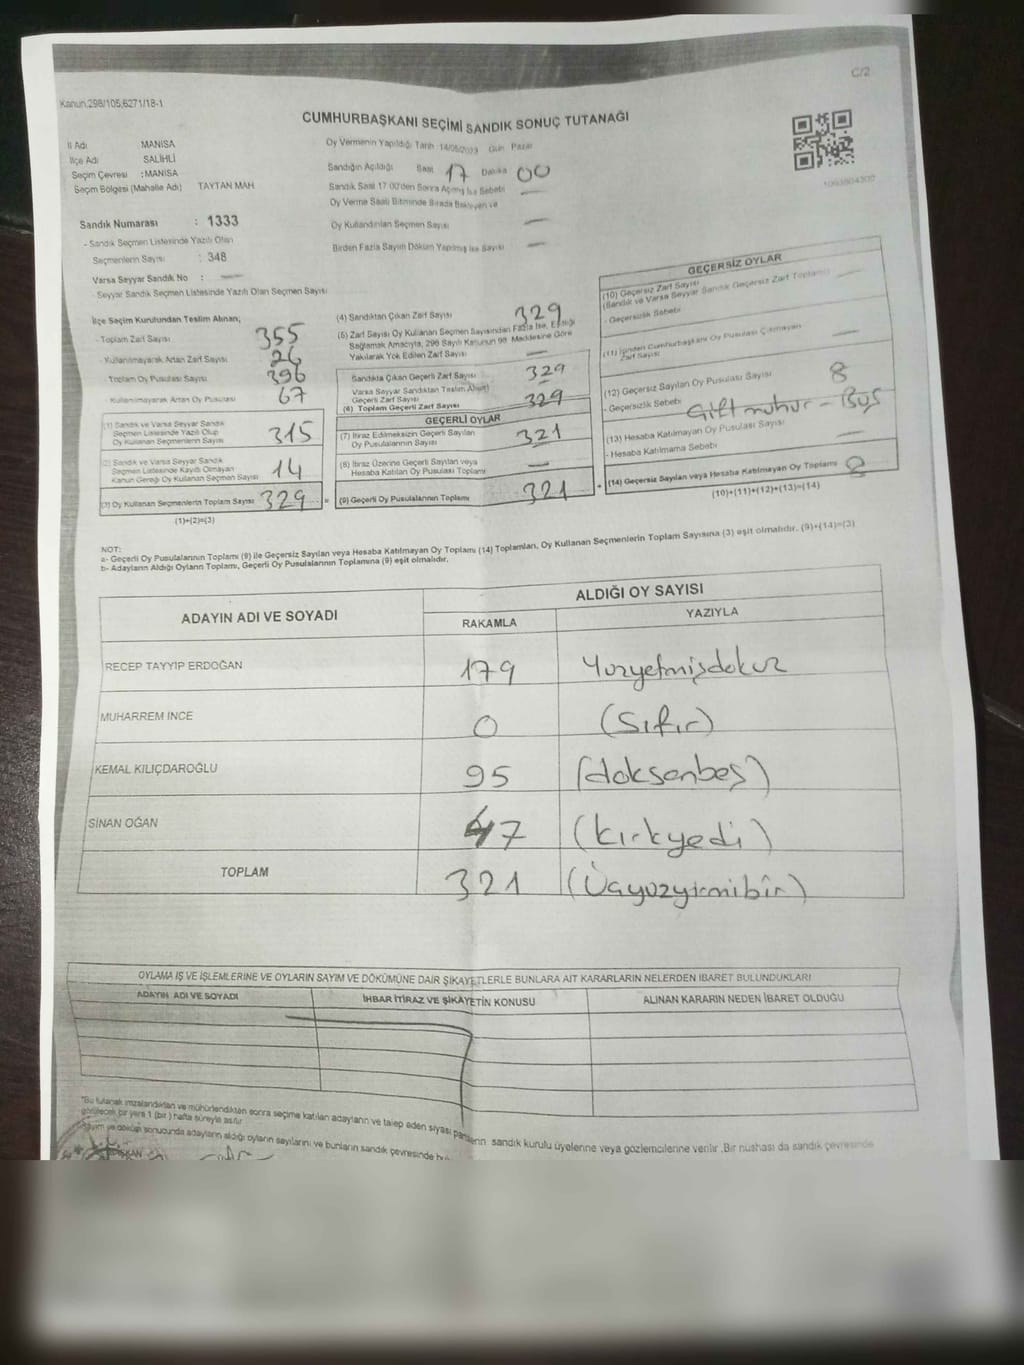 C/2
Kanun,298/105,6271/18-1
CUMHURBAŞKANI SEÇİMİ SANDIK SONUÇ TUTANAĞI
İl Adı MANİSA
İlçe Adı SALİHLİ
Seçim Çevresi : MANİSA
Seçim Bölgesi (Mahalle Adı) TAYTAN MAH
Sandık Numarası : 1333
- Sandık Seçmen Listesinde Yazılı Olan
Seçmenlerin Sayısı : 348
Varsa Seyyar Sandık No : —
- Seyyar Sandık Seçmen Listesinde Yazılı Olan Seçmen Sayısı
Oy Vermenin Yapıldığı Tarih 14/05/2023 Gün Pazar
Sandığın Açıldığı Saat 17 Dakika 00
Sandık Saat 17.00'den Sonra Açılmış İse Sebebi —
Oy Verme Saati Bitiminde Sırada Bekleyen ve
Oy Kullandırılan Seçmen Sayısı —
Birden Fazla Sayım Döküm Yapılmış İse Sayısı —
İlçe Seçim Kurulundan Teslim Alınan;
- Toplam Zarf Sayısı 355
- Kullanılmayarak Artan Zarf Sayısı 26
- Toplam Oy Pusulası Sayısı 396
- Kullanılmayarak Artan Oy Pusulası 67
(1) Sandık ve Varsa Seyyar Sandık
Seçmen Listesinde Yazılı Olup
Oy Kullanan Seçmenlerin Sayısı 315
(2) Sandık ve Varsa Seyyar Sandık
Seçmen Listesinde Kayıtlı Olmayan
Kanun Gereği Oy Kullanan Seçmen Sayısı 14
(3) Oy Kullanan Seçmenlerin Toplam Sayısı 329 =
(1)+(2)=(3)
(4) Sandıktan Çıkan Zarf Sayısı 329
(5) Zarf Sayısı Oy Kullanan Seçmen Sayısından Fazla İse, Eşitliği
Sağlamak Amacıyla, 298 Sayılı Kanunun 98. Maddesine Göre
Yakılarak Yok Edilen Zarf Sayısı —
Sandıkta Çıkan Geçerli Zarf Sayısı 329
Varsa Seyyar Sandıktan Teslim Alınan
Geçerli Zarf Sayısı
(6) Toplam Geçerli Zarf Sayısı 329
GEÇERLİ OYLAR
(7) İtiraz Edilmeksizin Geçerli Sayılan
Oy Pusulalarının Sayısı 321
(8) İtiraz Üzerine Geçerli Sayılan veya
Hesaba Katılan Oy Pusulası Toplamı —
(9) Geçerli Oy Pusulalarının Toplamı 321 +
GEÇERSİZ OYLAR
(10) Geçersiz Zarf Sayısı
(Sandık ve Varsa Seyyar Sandık Geçersiz Zarf Toplamı) —
- Geçersizlik Sebebi
(11) İçinden Cumhurbaşkanı Oy Pusulası Çıkmayan
Zarf Sayısı —
(12) Geçersiz Sayılan Oy Pusulası Sayısı 8
- Geçersizlik Sebebi Çift mühür - Boş
(13) Hesaba Katılmayan Oy Pusulası Sayısı —
- Hesaba Katılmama Sebebi
(14) Geçersiz Sayılan veya Hesaba Katılmayan Oy Toplamı 8
(10)+(11)+(12)+(13)=(14)
NOT:
a- Geçerli Oy Pusulalarının Toplamı (9) ile Geçersiz Sayılan veya Hesaba Katılmayan Oy Toplamı (14) Toplamları, Oy Kullanan Seçmenlerin Toplam Sayısına (3) eşit olmalıdır. (9)+(14)=(3)
b- Adayların Aldığı Oyların Toplamı, Geçerli Oy Pusulalarının Toplamına (9) eşit olmalıdır.
ADAYIN ADI VE SOYADI ALDIĞI OY SAYISI
RAKAMLA YAZIYLA
RECEP TAYYİP ERDOĞAN 179 Yüzyetmişdokuz
MUHARREM İNCE 0 (Sıfır)
KEMAL KILIÇDAROĞLU 95 (doksanbeş)
SİNAN OĞAN 47 (kırkyedi)
TOPLAM 321 (Üçyüzyirmibir)
OYLAMA İŞ VE İŞLEMLERİNE VE OYLARIN SAYIM VE DÖKÜMÜNE DAİR ŞİKAYETLERLE BUNLARA AİT KARARLARIN NELERDEN İBARET BULUNDUKLARI
ADAYIN ADI VE SOYADI İHBAR İTİRAZ VE ŞİKAYETİN KONUSU ALINAN KARARIN NEDEN İBARET OLDUĞU
"Bu tutanak imzalandıktan ve mühürlendikten sonra seçime katılan adayların ve talep eden siyasi partilerin sandık kurulu üyelerine veya gözlemcilerine verilir. Bir nüshası da sandık çevresinde
görülecek bir yere 1 (bir) hafta süreyle asılır
Sayım ve döküm sonucunda adayların aldığı oyların sayılarını ve bunların sandık çevresinde
BAŞKAN